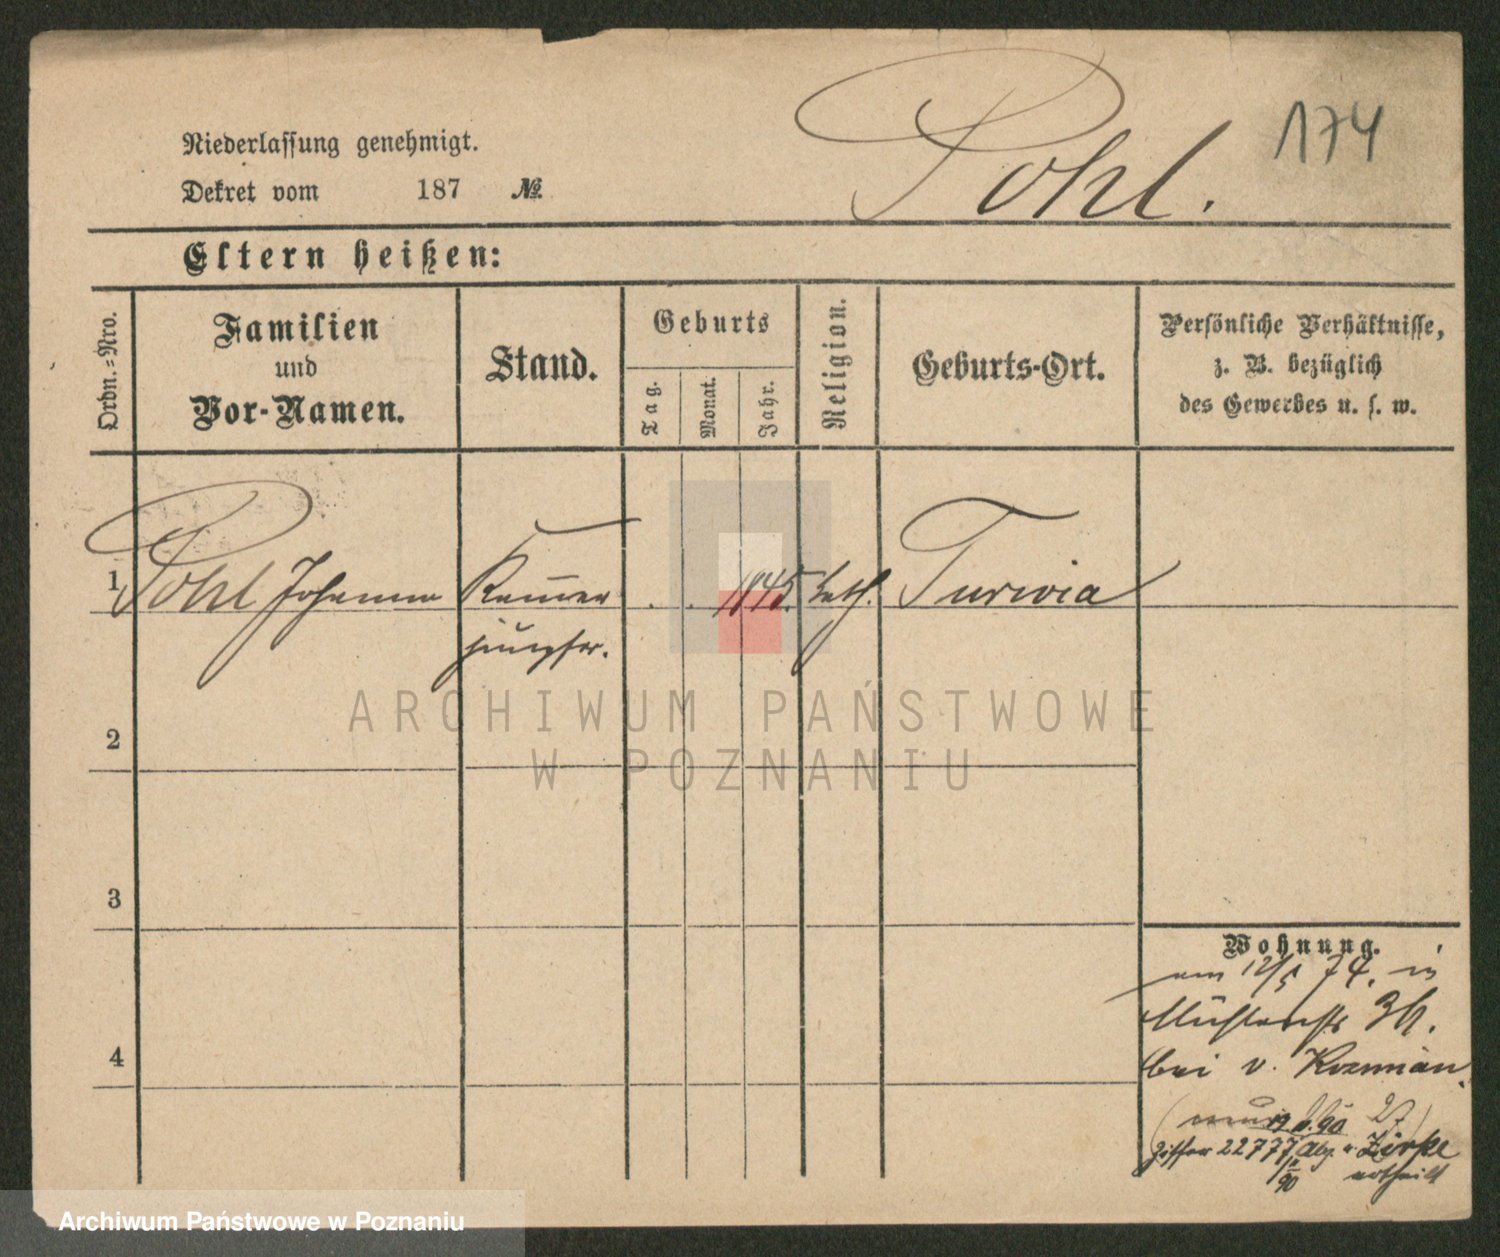 Pohl.
174
Niederlassung genehmigt.
Dekret vom 187 №.
Eltern heißen:
Ordn.-Nro.
Familien
und
Vor-Namen.
Stand.
Geburts
Tag.
Monat.
Jahr.
Religion.
Geburts-Ort.
Persönliche Verhältnisse,
z. B. bezüglich
des Gewerbes u. s. w.
1 Pohl Johanna Kammer . . 1845. kath. Turwia
jungfer.
2
3
4
Wohnung.
am 12/5 74. in
Mühlenstr 3b.
bei v. Kozmian.
19 90
22777 Abg. Zirke
90 ertheilt
ARCHIWUM PAŃSTWOWE
W POZNANIU
Archiwum Państwowe w Poznaniu